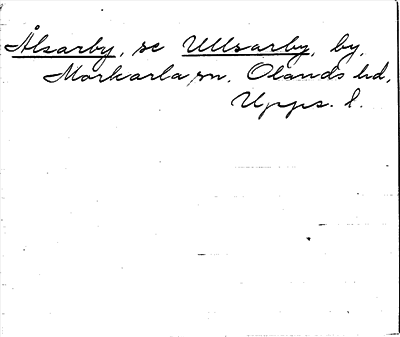 Ålsarby, se Ullsarby, by,
Morkarla sn, Olands hd,
Upps. l.